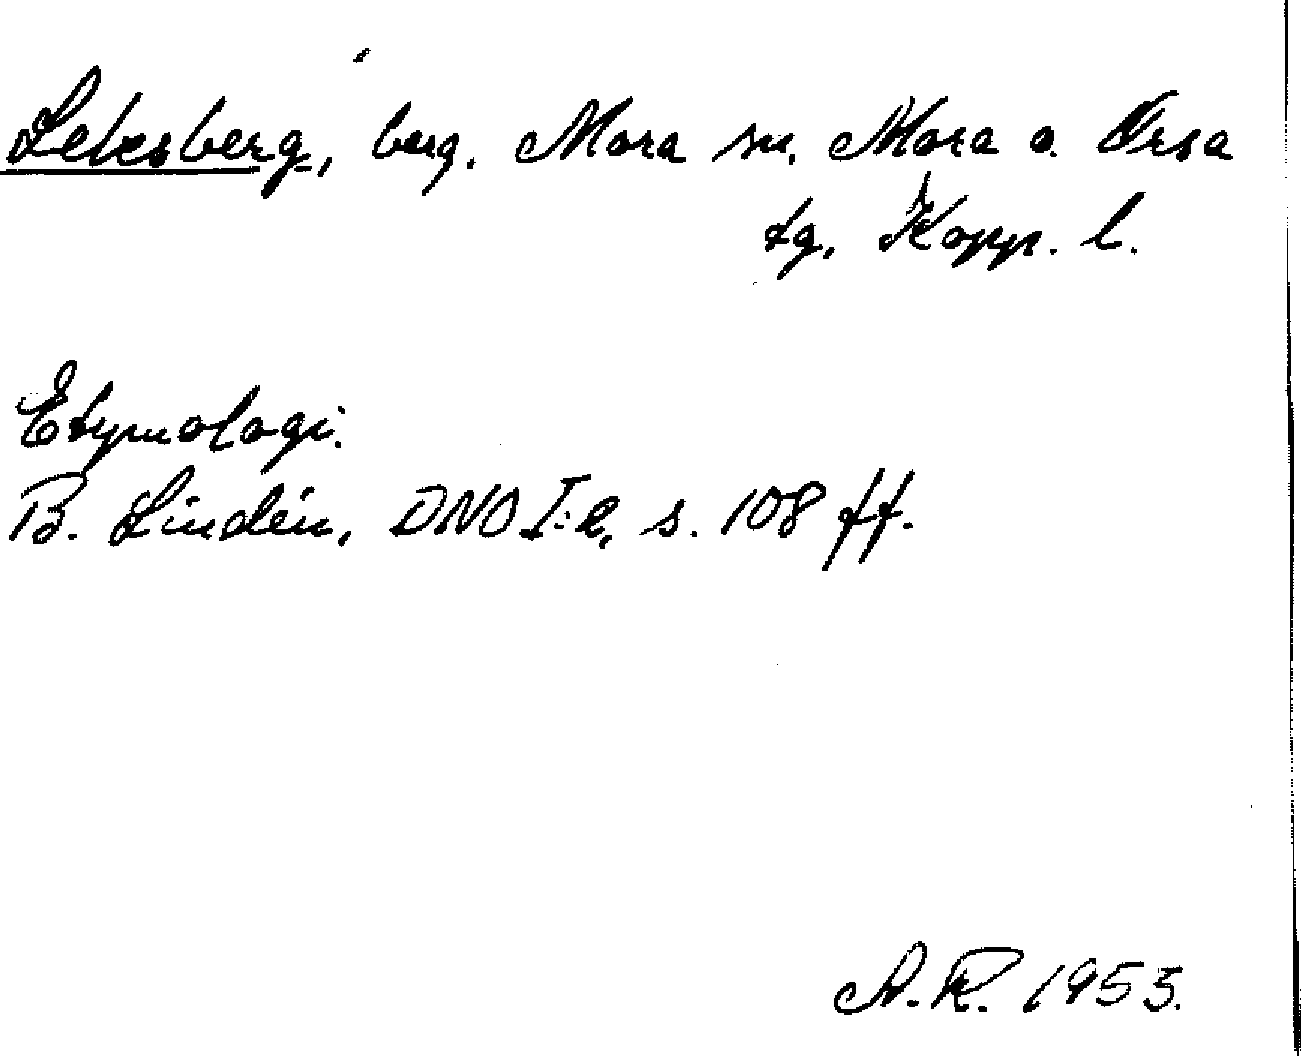 Leksberg, berg. Mora sn. Mora o. Orsa
tg, Kopp. l.
Etymologi.
B. Lindén, DNO I:2, s. 108 ff.
A.R. 1955.